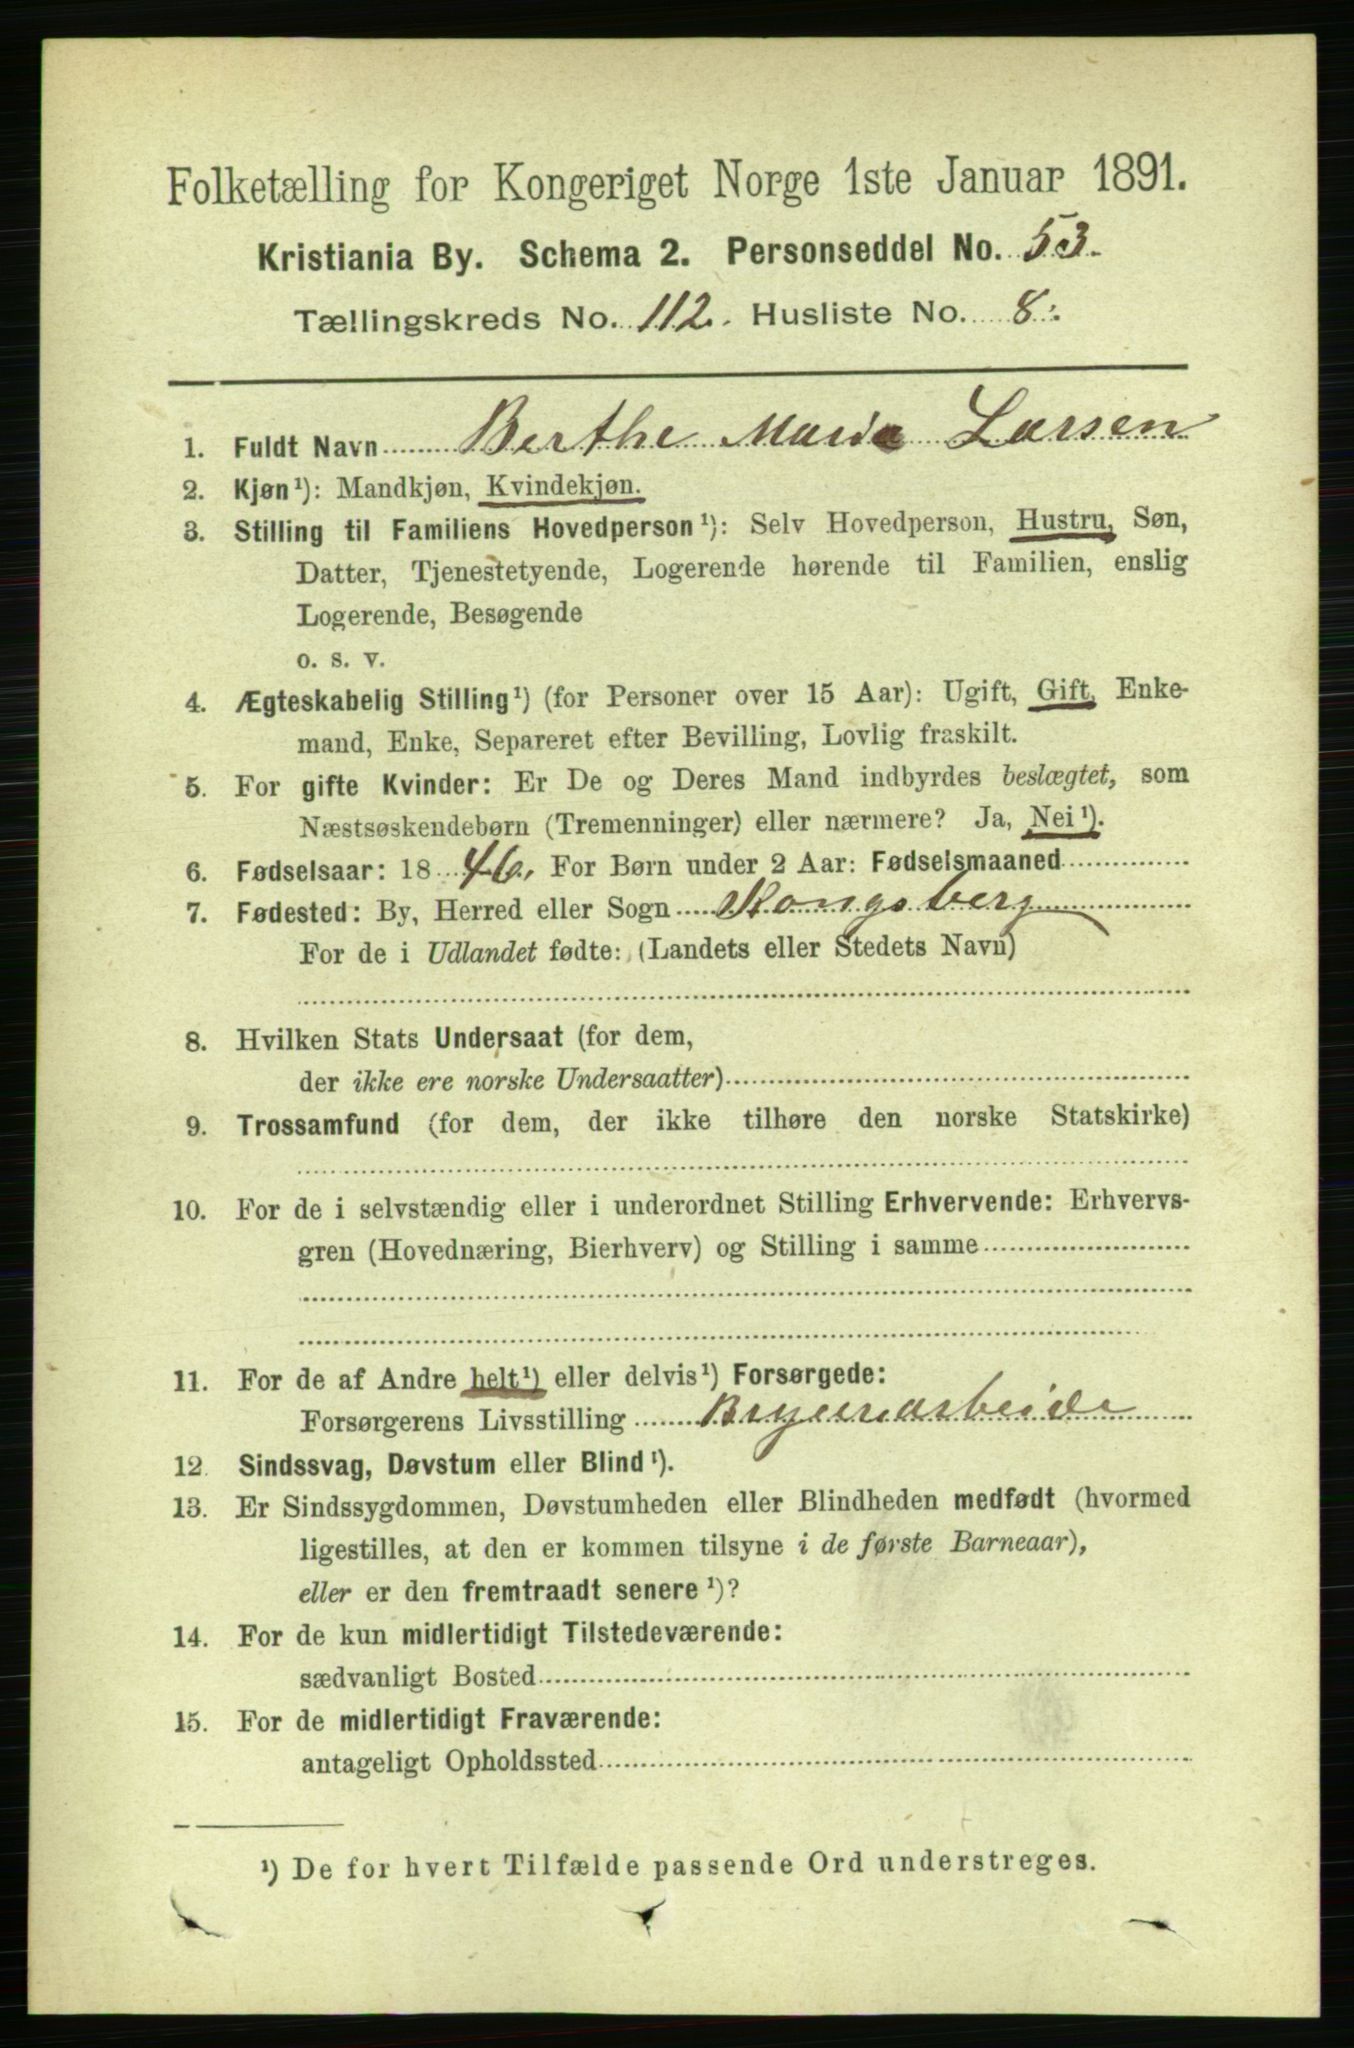 Folketælling for Kongeriget Norge 1ste Januar 1891.
Kristiania By. Schema 2. Personseddel No. 53.
Tællingskreds No. 112. Husliste No. 8.
1. Fuldt Navn Berthe Maria Larsen
2. Kjøn¹): Mandkjøn, Kvindekjøn.
3. Stilling til Familiens Hovedperson¹): Selv Hovedperson, Hustru, Søn,
Datter, Tjenestetyende, Logerende hørende til Familien, enslig
Logerende, Besøgende
o. s. v.
4. Ægteskabelig Stilling¹) (for Personer over 15 Aar): Ugift, Gift, Enke-
mand, Enke, Separeret efter Bevilling, Lovlig fraskilt.
5. For gifte Kvinder: Er De og Deres Mand indbyrdes beslægtet, som
Næstsøskendebørn (Tremenninger) eller nærmere? Ja, Nei¹).
6. Fødselsaar: 1846. For Børn under 2 Aar: Fødselsmaaned
7. Fødested: By, Herred eller Sogn Kongsberg
For de i Udlandet fødte: (Landets eller Stedets Navn)
8. Hvilken Stats Undersaat (for dem,
der ikke ere norske Undersaatter)
9. Trossamfund (for dem, der ikke tilhøre den norske Statskirke)
10. For de i selvstændig eller i underordnet Stilling Erhvervende: Erhvervs-
gren (Hovednæring, Bierhverv) og Stilling i samme
11. For de af Andre helt¹) eller delvis¹) Forsørgede:
Forsørgerens Livsstilling
12. Sindssvag, Døvstum eller Blind¹).
13. Er Sindssygdommen, Døvstumheden eller Blindheden medfødt (hvormed
ligestilles, at den er kommen tilsyne i de første Barneaar),
eller er den fremtraadt senere¹)?
14. For de kun midlertidigt Tilstedeværende:
sædvanligt Bosted
15. For de midlertidigt Fraværende:
antageligt Opholdssted
¹) De for hvert Tilfælde passende Ord understreges.